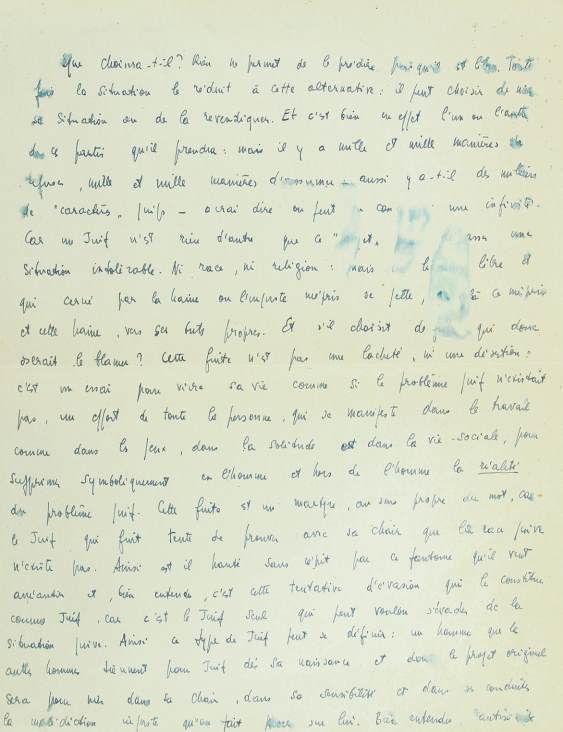 Que choisira-t-il? Rien ne permet de le prédire puisqu'il est libre. Toute
fois la situation le réduit à cette alternative: il peut choisir de nier
sa situation ou de la revendiquer. Et c'est bien en effet l'un ou l'autre
de ces partis qu'il prendra: mais il y a mille et mille manières de
refuser, mille et mille manières d'assumer - aussi y a-t-il des milliers
de "caractères" juifs - à vrai dire on peut en une infinité.
Car un Juif n'est rien d'autre que ce une
situation intolérable. Ni race, ni religion: mais libre et
qui cerné par la haine ou l'injuste mépris se jette, à ce mépris
et cette haine, vers ses buts propres. Et s'il choisit de qui donc
oserait le blâmer? Cette fuite n'est pas une lâcheté, ni une désertion:
c'est un essai pour vivre sa vie comme si le problème juif n'existait
pas, un effort de toute la personne, qui se manifeste dans le travail
comme dans les jeux, dans la solitude et dans la vie sociale, pour
supprimer symboliquement en l'homme et hors de l'homme la réalité
du problème juif. Cette fuite est un martyre, au sens propre du mot, car
le Juif qui fuit tente de prouver avec sa chair que la race juive
n'existe pas. Ainsi est il hanté sans répit par ce fantome qu'il veut
anéantir et, bien entendu, c'est cette tentative d'évasion qui le constitue
comme Juif, car c'est le Juif seul qui peut vouloir s'évader de la
situation juive. Ainsi ce type de Juif peut se définir: un homme que les
autres hommes tiennent pour Juif dès sa naissance et dont le projet originel
sera pour nier dans sa chair, dans sa sensibilité et dans ses conduites
la malédiction injuste qu'on fait peser sur lui. Bien entendu